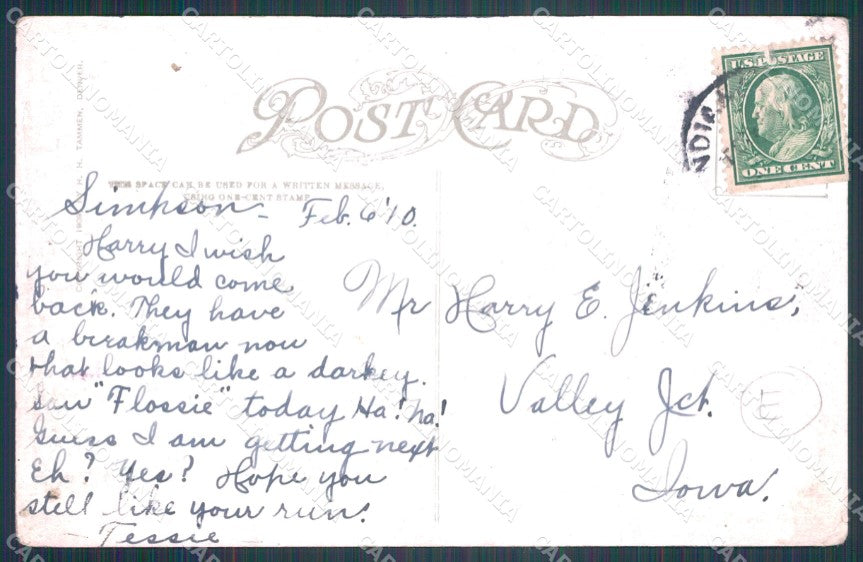 POST CARD
THIS SPACE CAN BE USED FOR A WRITTEN MESSAGE,
USING ONE-CENT STAMP
U.S. POSTAGE
ONE CENT
H. H. TAMMEN, DENVER.
Simpson - Feb. 6 '10.
Harry I wish
you would come
back. They have
a brakman now
that looks like a darkey.
saw "Flossie" today Ha! ha!
Guess I am getting next
Eh? Yes? Hope you
still like your run.
- Tessie
Mr Harry E. Jenkins,
Valley Jct.
Iowa.
E
CARTOLINOMANIA